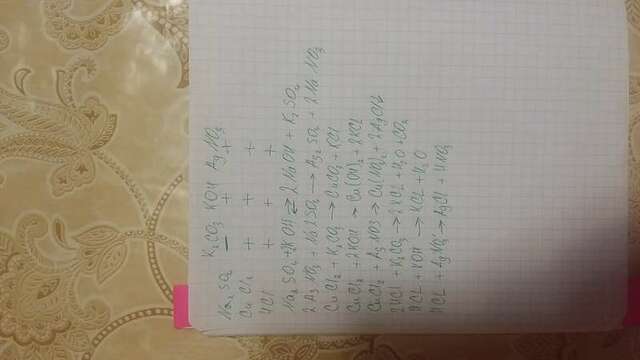 K₂CO₃ KOH AgNO₃
Na₂SO₄ − + +
CuCl₂ + + +
HCl + + +
Na₂SO₄ + 2KOH ⇄ 2NaOH + K₂SO₄
2AgNO₃ + Na2SO₄ → Ag₂SO₄ + 2NaNO₃
CuCl₂ + K₂CO₃ → CuCO₃ + KCl
CuCl₂ + 2KOH → Cu(OH)₂ + 2KCl
CuCl₂ + AgNO3 → Cu(NO₃)₂ + 2AgCl↓
2HCl + K₂CO₃ → 2KCL + H₂O + CO₂
HCL + KOH → KCL + H₂O
HCL + AgNO₃ → AgCl + HNO₃